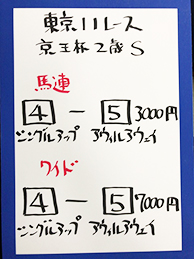 東京11レース
京王杯2歳S
馬連
4 ー 5 3000円
シングルアップ アウィルアウェイ
ワイド
4 ー 5 7000円
シングルアップ アウィルアウェイ